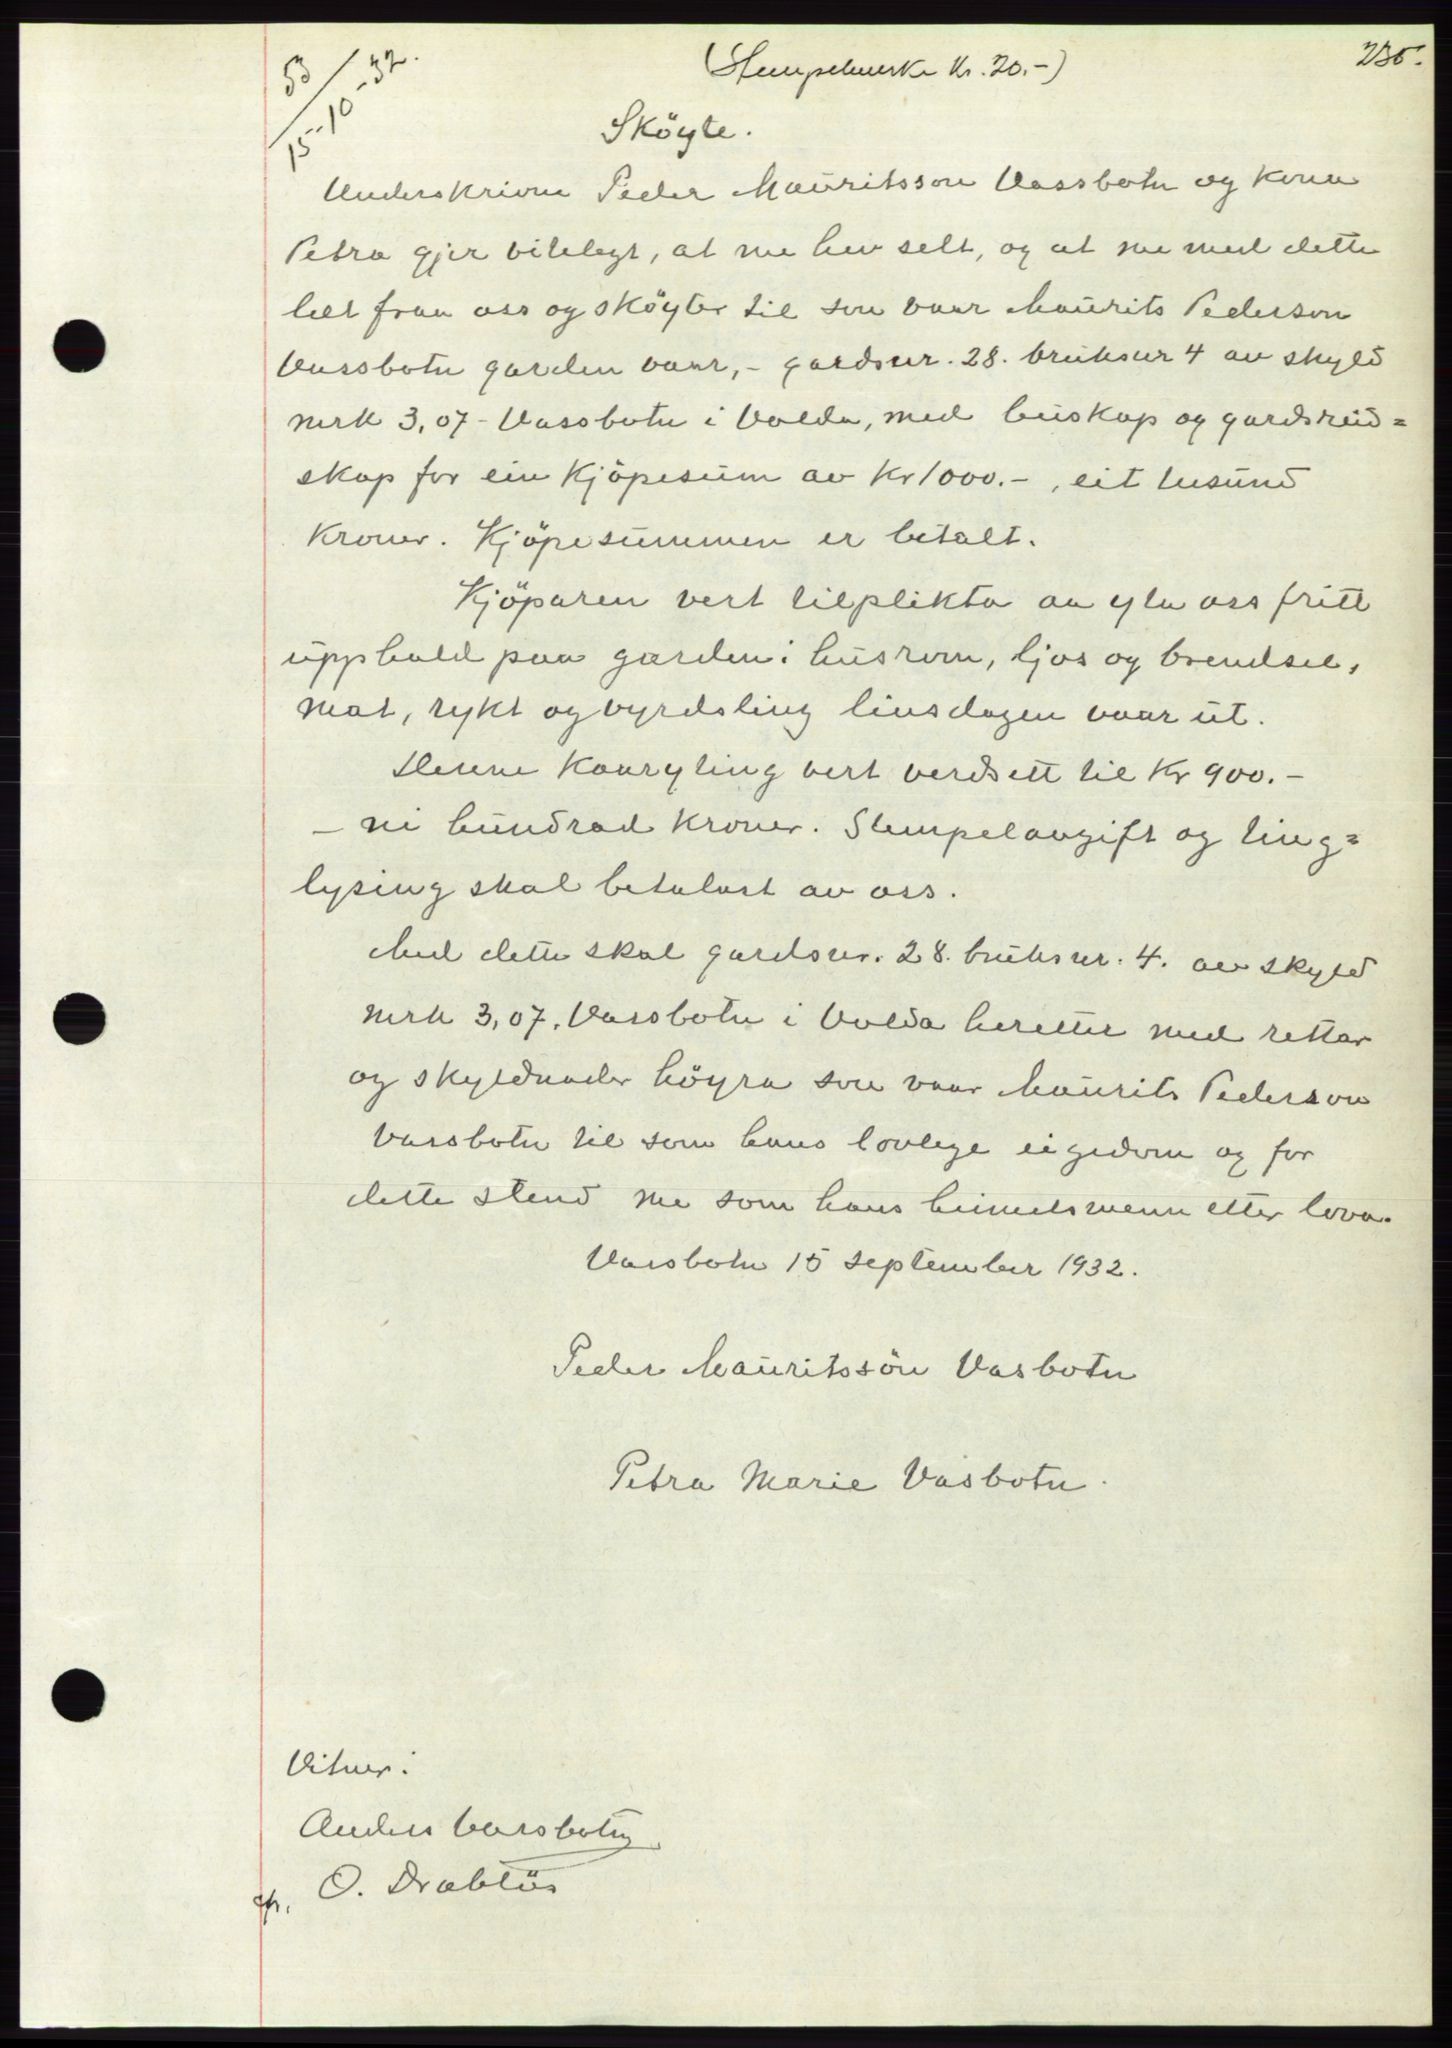 235.
53
15-10-32.
(Stempelmerke kr. 20.-)
Sköyte.
Underskrivne Peder Mauritsson Vassbotn og kona
Petra gjer vitelegt, at me hev selt, og at me med dette
let fraa oss og sköyter til son vaar Maurits Pederson
Vassbotn garden vaar,- gardsnr. 28. bruksnr 4 av skyld
mrk 3,07 - Vassbotn i Volda, med buskap og gardsreid=
skap for ein kjöpesum av kr 1000.-, eit tusund
kroner. Kjöpesummen er betalt.
Kjöparen vert tilplikta aa yta oss fritt
upphald paa garden: husrom, ljos og brendsel,
mat, rykt og vyrdsling livsdagen vaar ut.
Denne kaaryting vert verdsett til kr 900.-
- ni hundrad kroner. Stempelavgift og ting=
lysing skal betalast av oss.
Med dette skal gardsnr. 28. bruksnr. 4. av skyld
mrk 3,07, Vassbotn i Volda heretter med rettar
og skyldnader höyra son vaar Maurits Pederson
Vassbotn til som hans lovlege eigedom og for
dette stend me som hans heimelsmenn etter lova.
Vassbotn 15 september 1932.
Peder Mauritssön Vasbotn
Petra Marie Vasbotn.
Vitner:
Anders Vassbotn
O. Drabløs